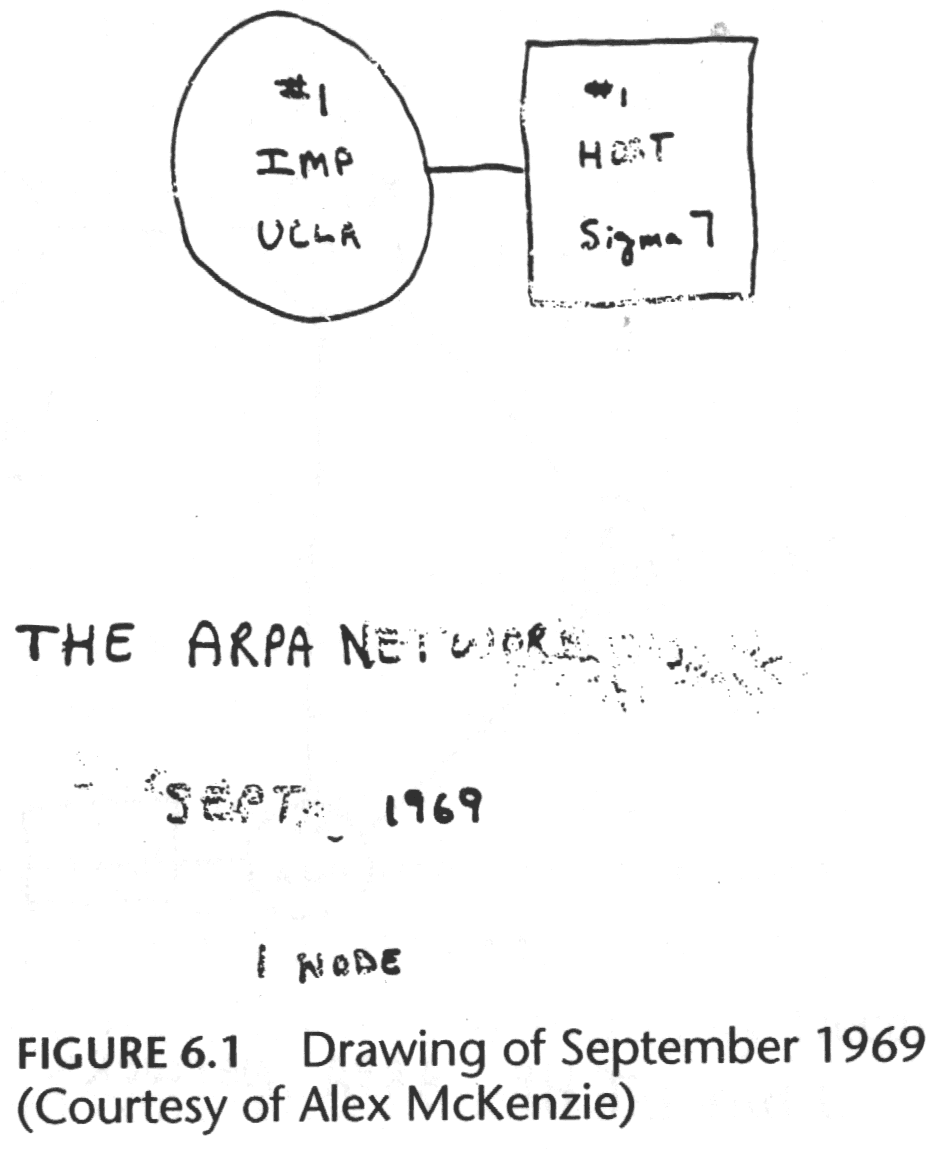 #1
IMP
UCLA
#1
HOST
Sigma 7
THE ARPA NETWORK
SEPT 1969
1 NODE
FIGURE 6.1 Drawing of September 1969
(Courtesy of Alex McKenzie)